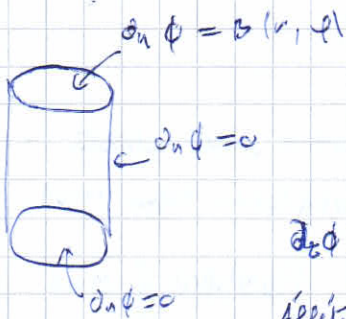 ∂ₙ ϕ = B(r, φ)
∂ₙ ϕ = 0
∂_z ϕ
∂ₙ ϕ = 0